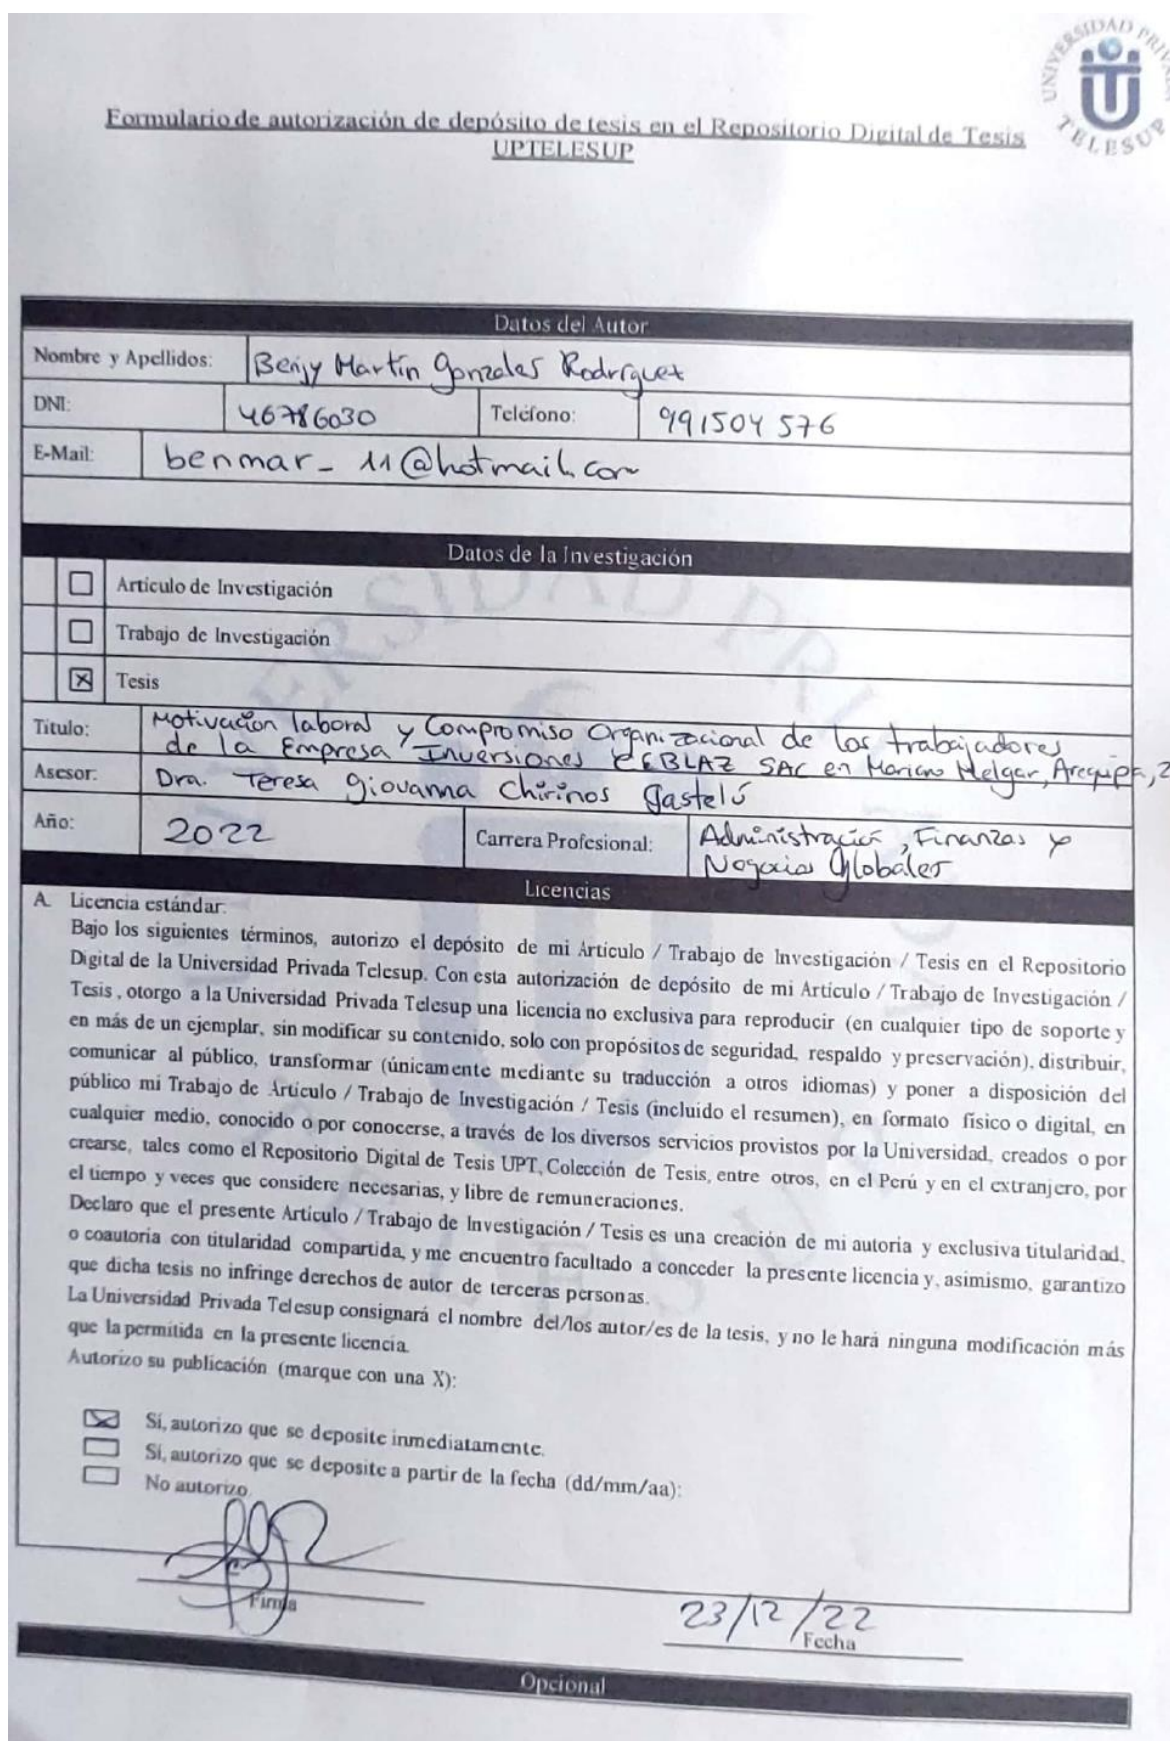 UNIVERSIDAD PRIVADA
TELESUP
Formulario de autorización de depósito de tesis en el Repositorio Digital de Tesis
UPTELESUP
Datos del Autor
Nombre y Apellidos: Benjy Martin Gonzales Rodriguez
DNI: 46786030 Teléfono: 991504576
E-Mail: benmar_11@hotmail.com
Datos de la Investigación
Artículo de Investigación
Trabajo de Investigación
X Tesis
Título: Motivación laboral y Compromiso Organizacional de los trabajadores
de la Empresa Inversiones SAC en Mariano Melgar, Arequipa, 2
Asesor: Dra. Teresa Giovanna Chirinos Gastelú
Año: 2022 Carrera Profesional: Administración, Finanzas y
Negocios Globales
Licencias
A. Licencia estándar:
Bajo los siguientes términos, autorizo el depósito de mi Artículo / Trabajo de Investigación / Tesis en el Repositorio
Digital de la Universidad Privada Telesup. Con esta autorización de depósito de mi Artículo / Trabajo de Investigación /
Tesis , otorgo a la Universidad Privada Telesup una licencia no exclusiva para reproducir (en cualquier tipo de soporte y
en más de un ejemplar, sin modificar su contenido, solo con propósitos de seguridad, respaldo y preservación), distribuir,
comunicar al público, transformar (únicamente mediante su traducción a otros idiomas) y poner a disposición del
público mi Trabajo de Artículo / Trabajo de Investigación / Tesis (incluido el resumen), en formato físico o digital, en
cualquier medio, conocido o por conocerse, a través de los diversos servicios provistos por la Universidad, creados o por
crearse, tales como el Repositorio Digital de Tesis UPT, Colección de Tesis, entre otros, en el Perú y en el extranjero, por
el tiempo y veces que considere necesarias, y libre de remuneraciones.
Declaro que el presente Artículo / Trabajo de Investigación / Tesis es una creación de mi autoría y exclusiva titularidad,
o coautoría con titularidad compartida, y me encuentro facultado a conceder la presente licencia y, asimismo, garantizo
que dicha tesis no infringe derechos de autor de terceras personas.
La Universidad Privada Telesup consignará el nombre del/los autor/es de la tesis, y no le hará ninguna modificación más
que la permitida en la presente licencia.
Autorizo su publicación (marque con una X):
X Sí, autorizo que se deposite inmediatamente.
Sí, autorizo que se deposite a partir de la fecha (dd/mm/aa):
No autorizo.
Firma
23/12/22
Fecha
Opcional